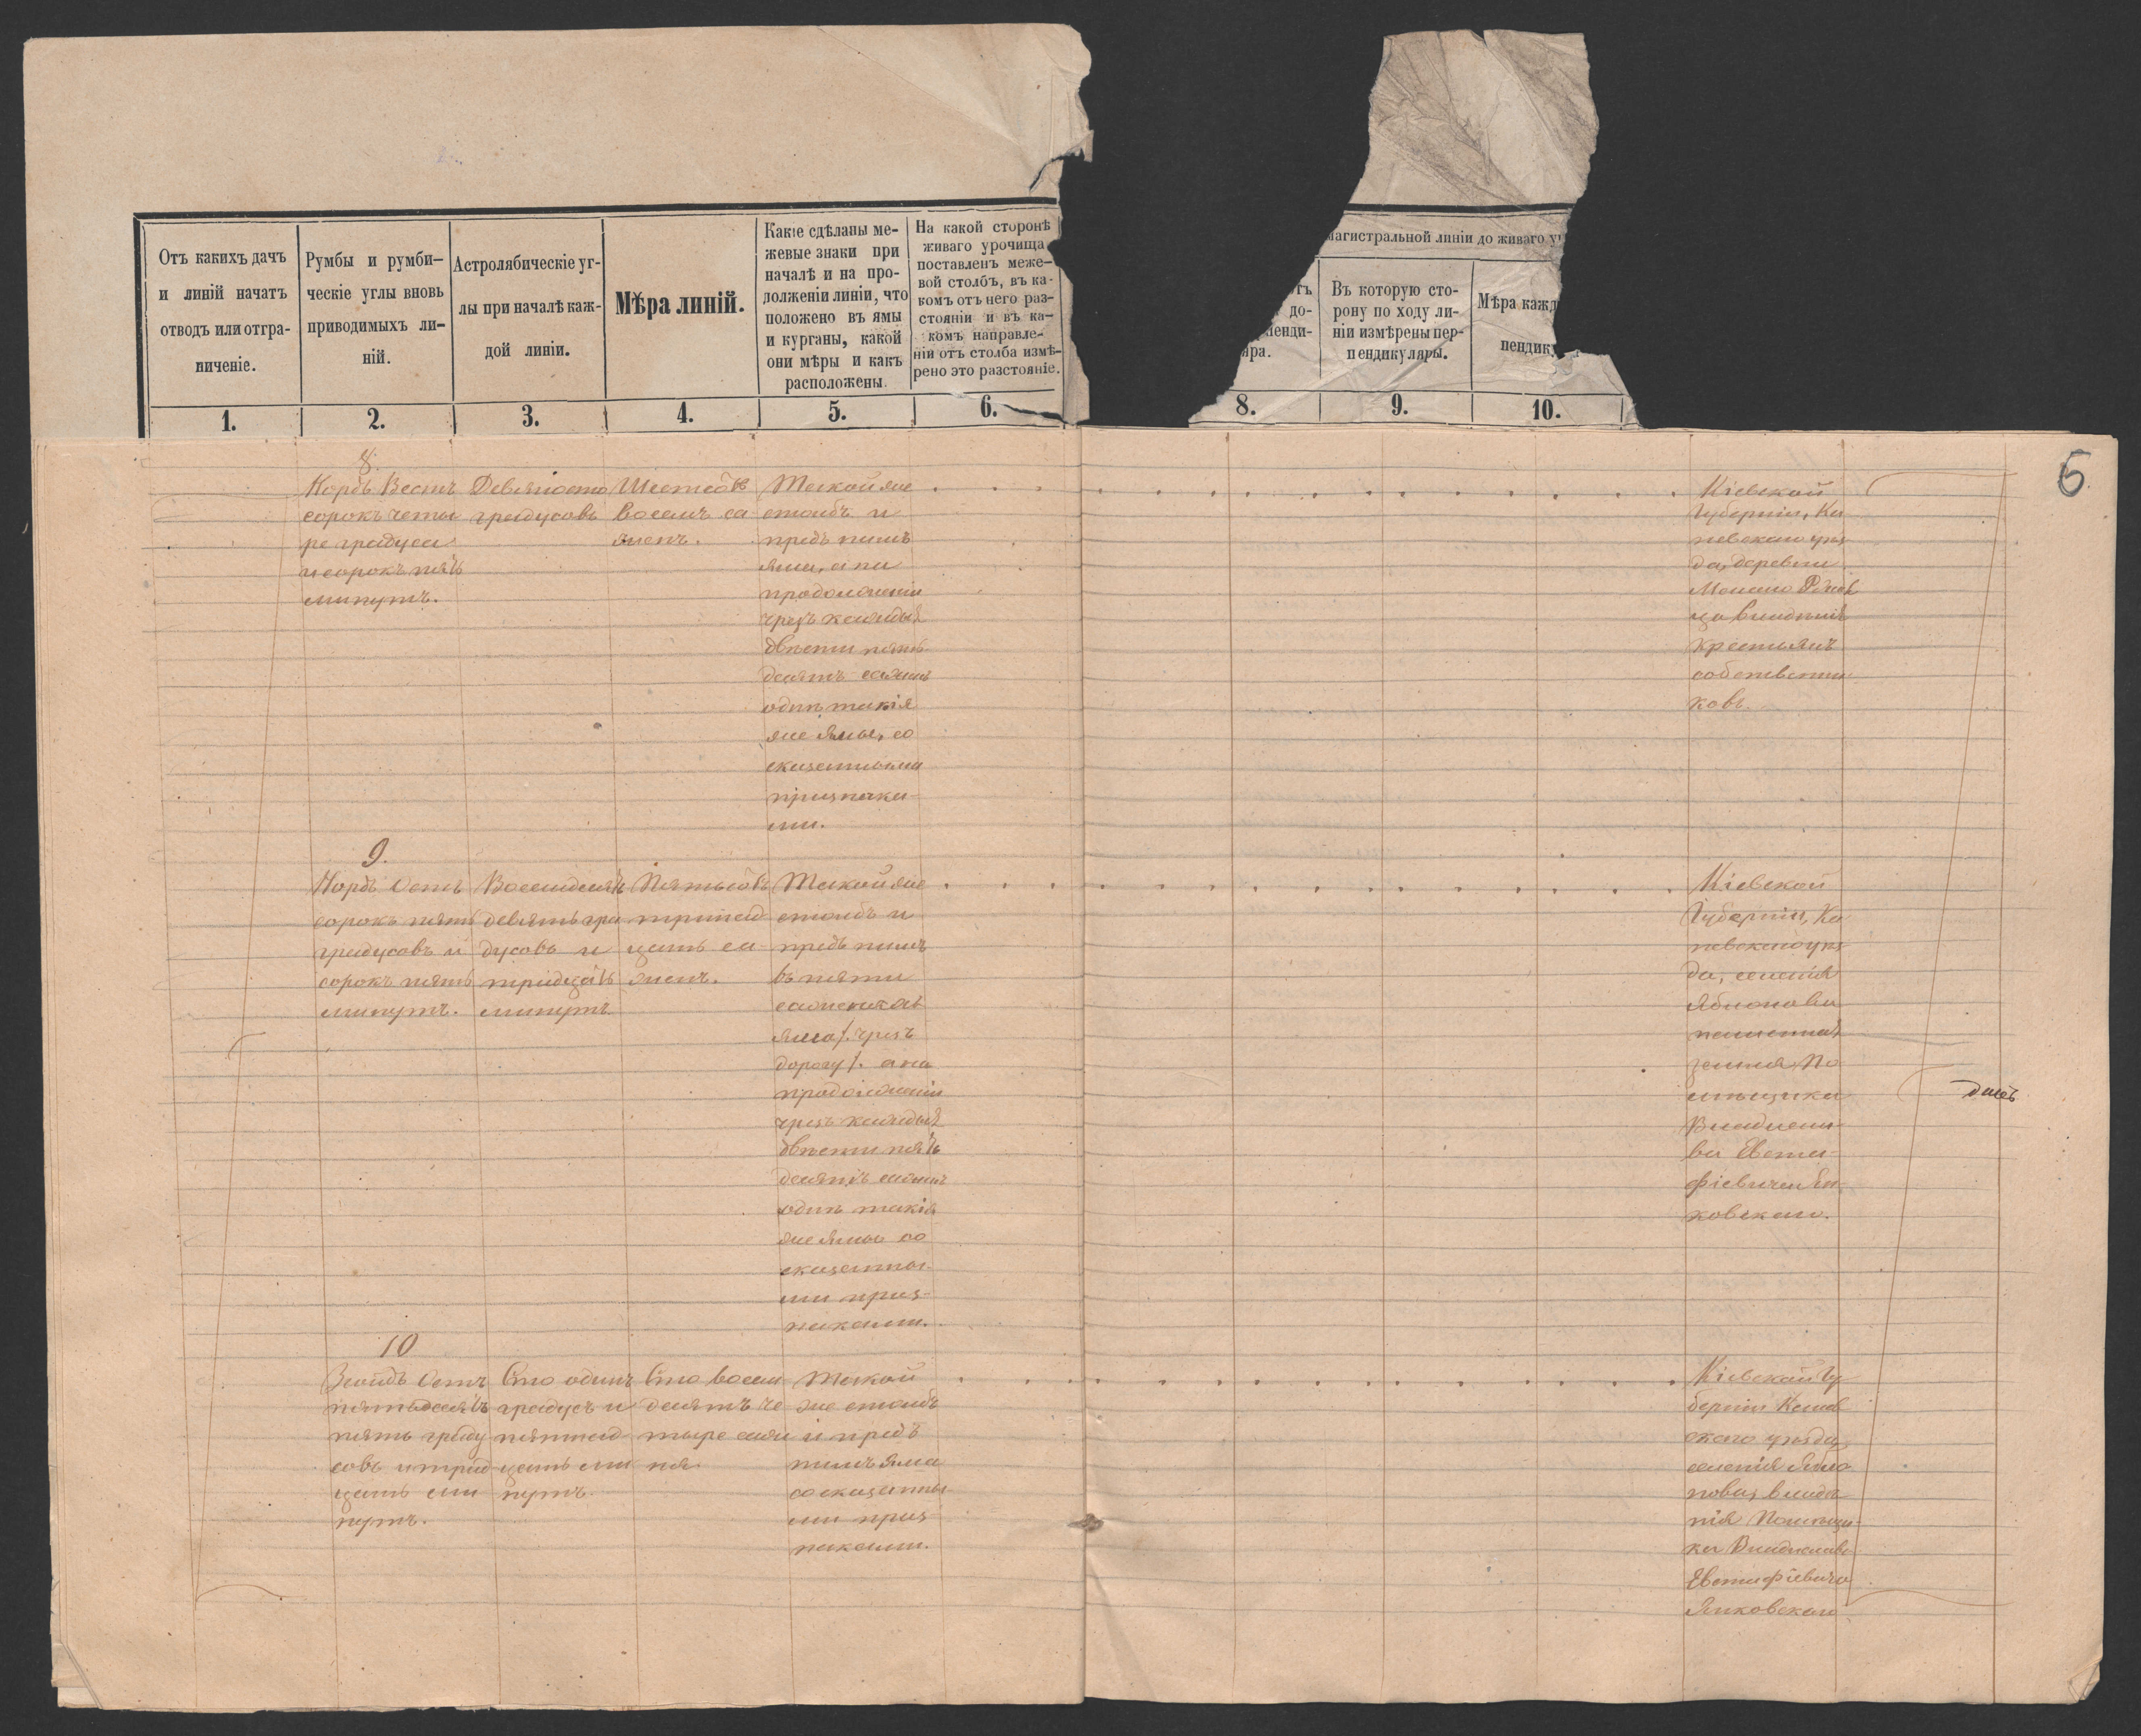 5
Отъ какихъ дачъ
и линій начатъ
отводъ или отгра-
ниченіе.
Румбы и румби-
ческіе углы вновь
приводимыхъ ли-
ній.
Астролябическіе уг-
лы при началѣ каж-
дой линіи.
Мѣра линій.
Какіе сдѣланы ме-
жевые знаки при
началѣ и на про-
долженіи линіи, что
положено въ ямы
и курганы, какой
они мѣры и какъ
расположены.
На какой сторонѣ
живаго урочища
поставленъ меже-
вой столбъ, въ ка-
комъ отъ него раз-
стояніи и въ ка-
комъ направле-
ніи отъ столба измѣ-
рено это разстояніе.
магистральной линіи до живаго
до-
пенди-
яра.
Въ которую сто-
рону по ходу ли-
ніи измѣрены пер-
пендикуляры.
Мѣра кажд
пендику
1.
2.
3.
4.
5.
6.
8.
9.
10.
8.
Нордъ Вестъ
сорокъ четы
ре градуса
и сорокъ пять
минутъ.
Девяносто
градусовъ
Шестьсотъ
восемь са
женъ.
Такой же
столбъ и
предъ нимъ
яма, а на
продолженіи
чрезъ каждыя
двѣсти пять
десятъ сажень
однѣ такія
же ямы, со
сказанными
признака
ми.
Кіевской
Губерніи, Ка
невскаго уѣз
да, деревни
владѣнія
крестьянъ
собственни
ковъ.
9.
Нордъ Остъ
сорокъ пять
градусовъ и
сорокъ пять
минутъ.
Восемдесятъ
девять гра
дусовъ и
тридцать
минутъ
Пятьсотъ
тринад
цать са
женъ.
Такой же
столбъ и
предъ нимъ
въ пяти
саженяхъ
яма /. чрезъ
дорогу /. а на
продолженіи
чрезъ каждыя
двѣсти пять
десятъ сажень
однѣ такія
же ямы со
сказанны-
ми приз-
наками.
Кіевской
Губерніи, Ка
невскаго уѣз
да, селенія
Яблонова
пахатная
земля По
мѣщика
Владисла
ва Евста-
фіевича Ян
ковскаго.
10
Зюйдъ Остъ
пятьдесятъ
пять граду
совъ и трид
цать ми
нутъ.
Сто одинъ
градусъ и
пятнад
цать ми
нутъ.
Сто восем
десятъ че
тыре саже
ня.
Такой
же столбъ
и предъ
нимъ яма
со сказанны
ми приз
наками.
Кіевской Гу
берніи Канев
скаго уѣзда,
селенія Ябло
нова, владѣ
нія Помѣщи-
ка Владислава
Евстафіевича
Янковскаго